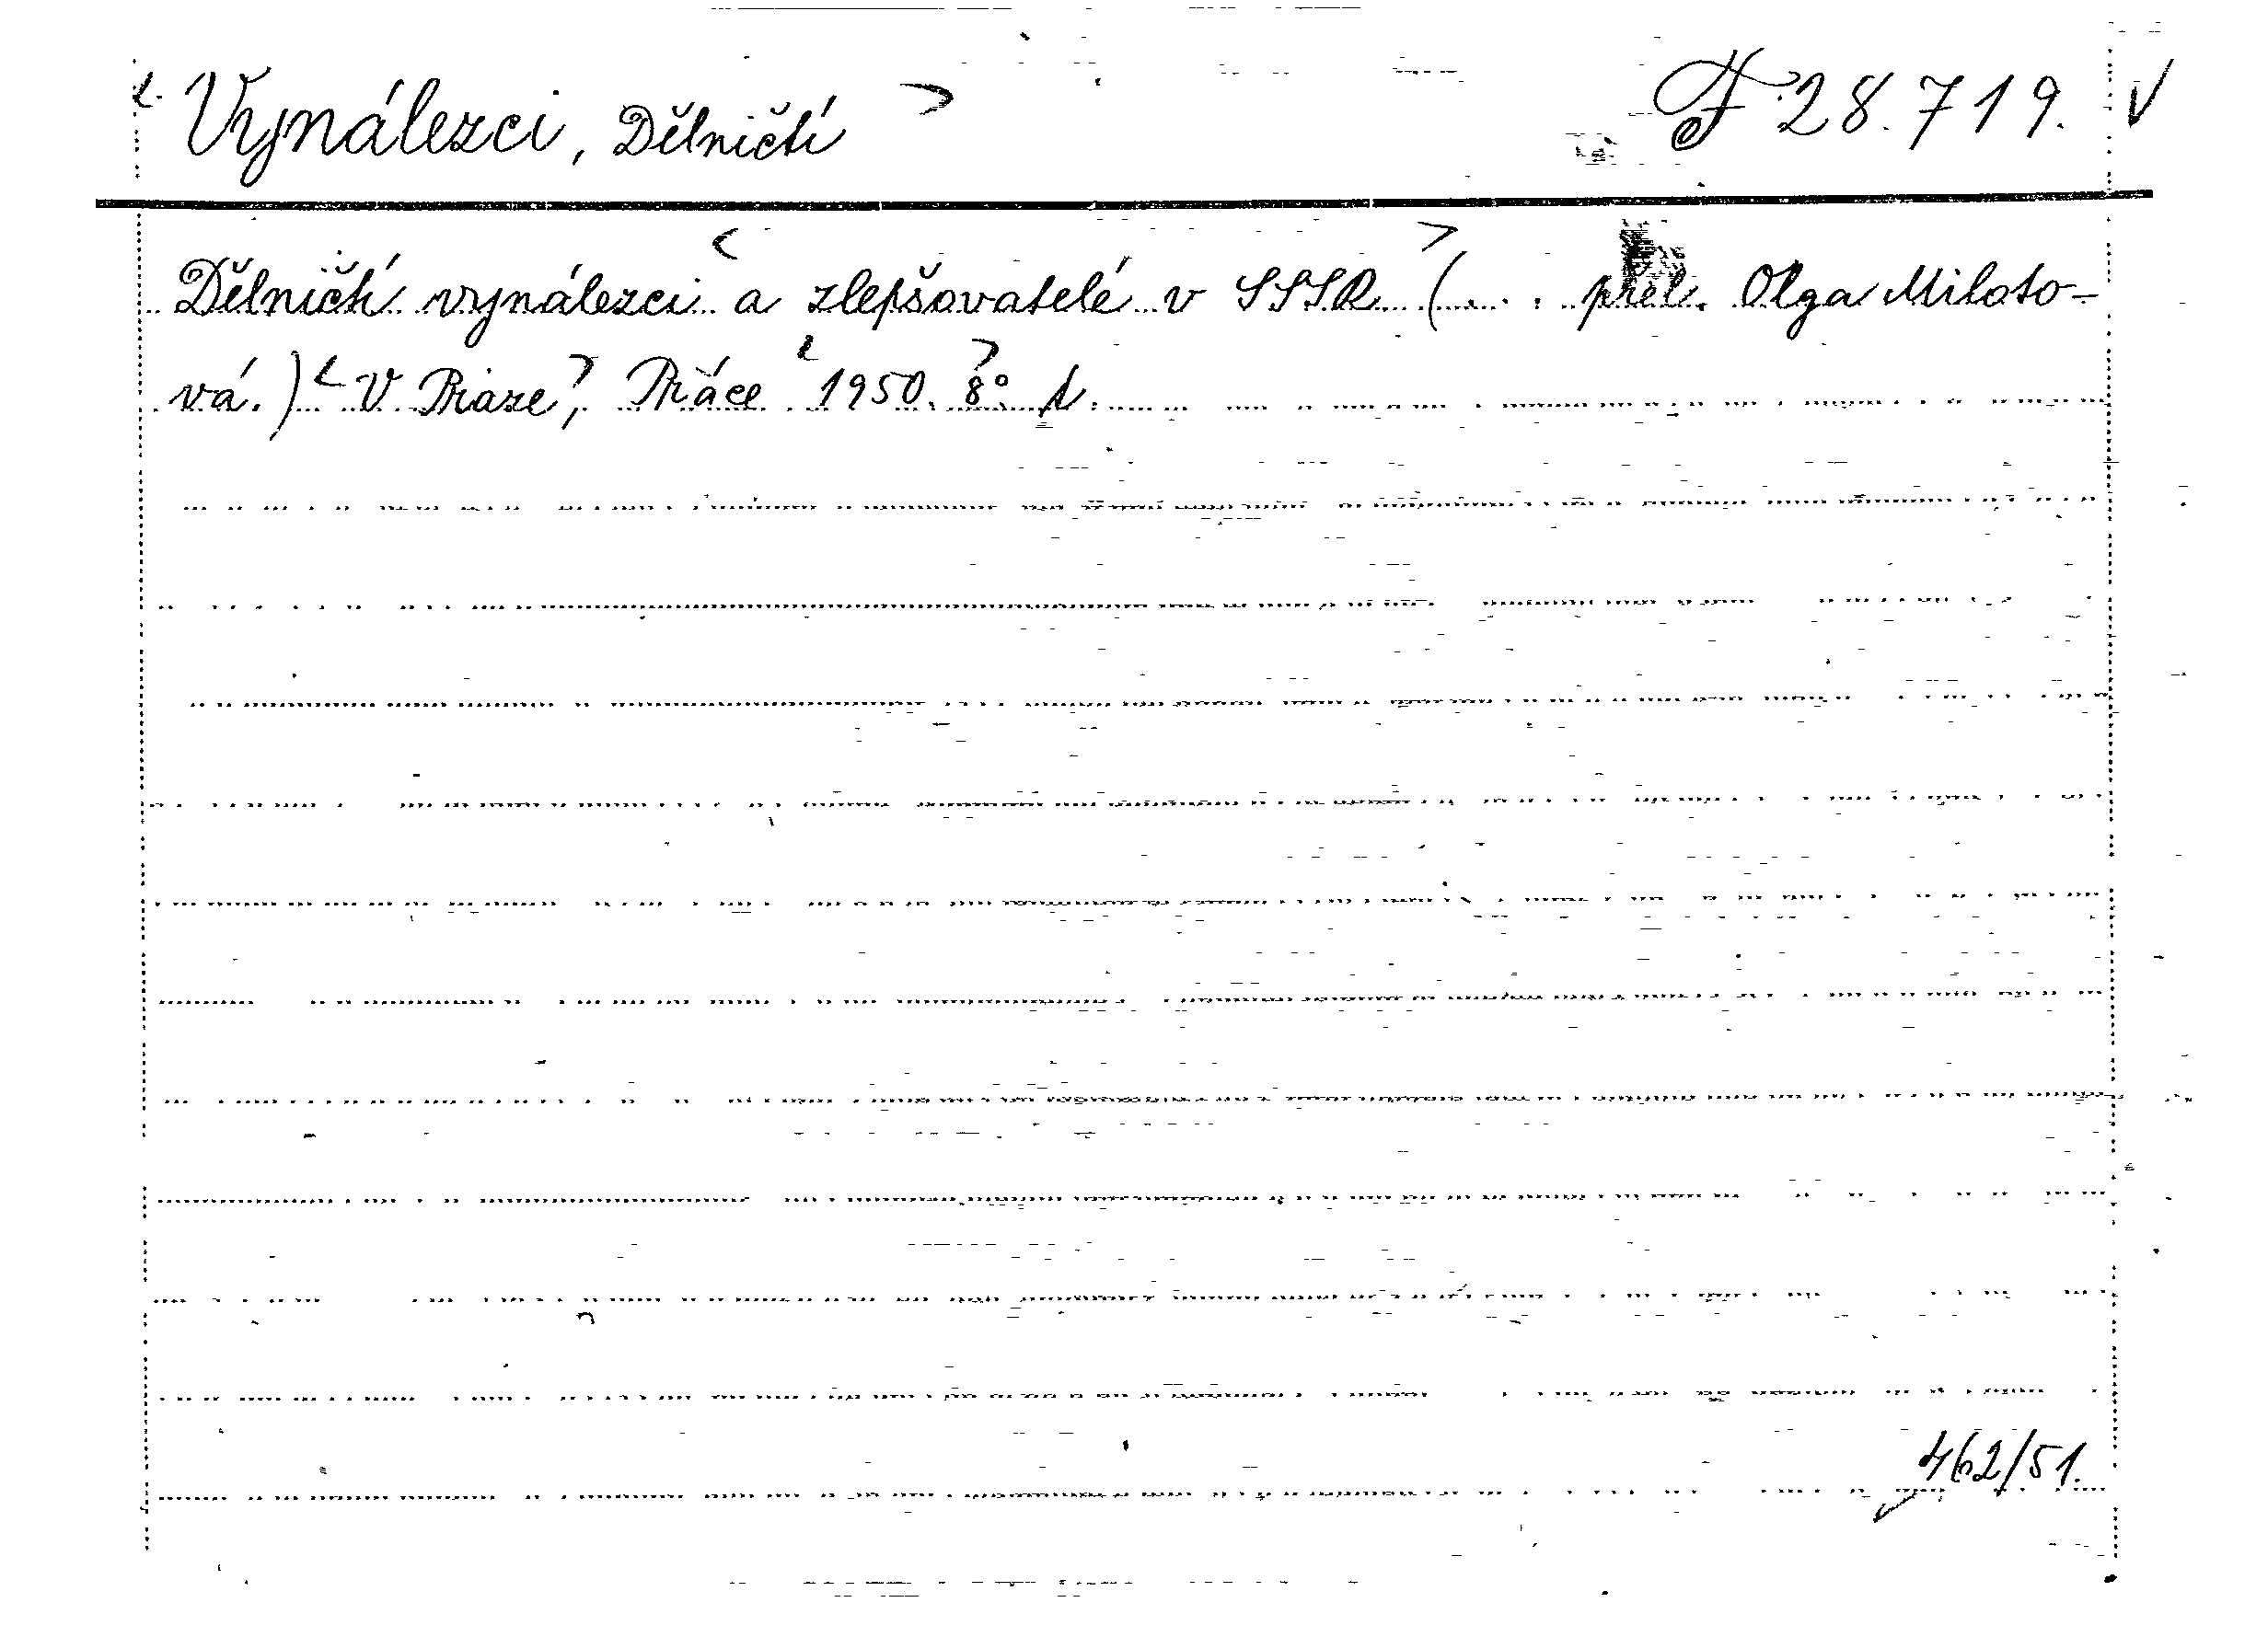 < Vynálezci, Dělničtí > F 28.719. V
Dělničtí vynálezci < a zlepšovatelé v SSSR > (... přel. Olga Miloto-
vá.) < V Praze >, Práce < 1950. > 8°.
462/51.